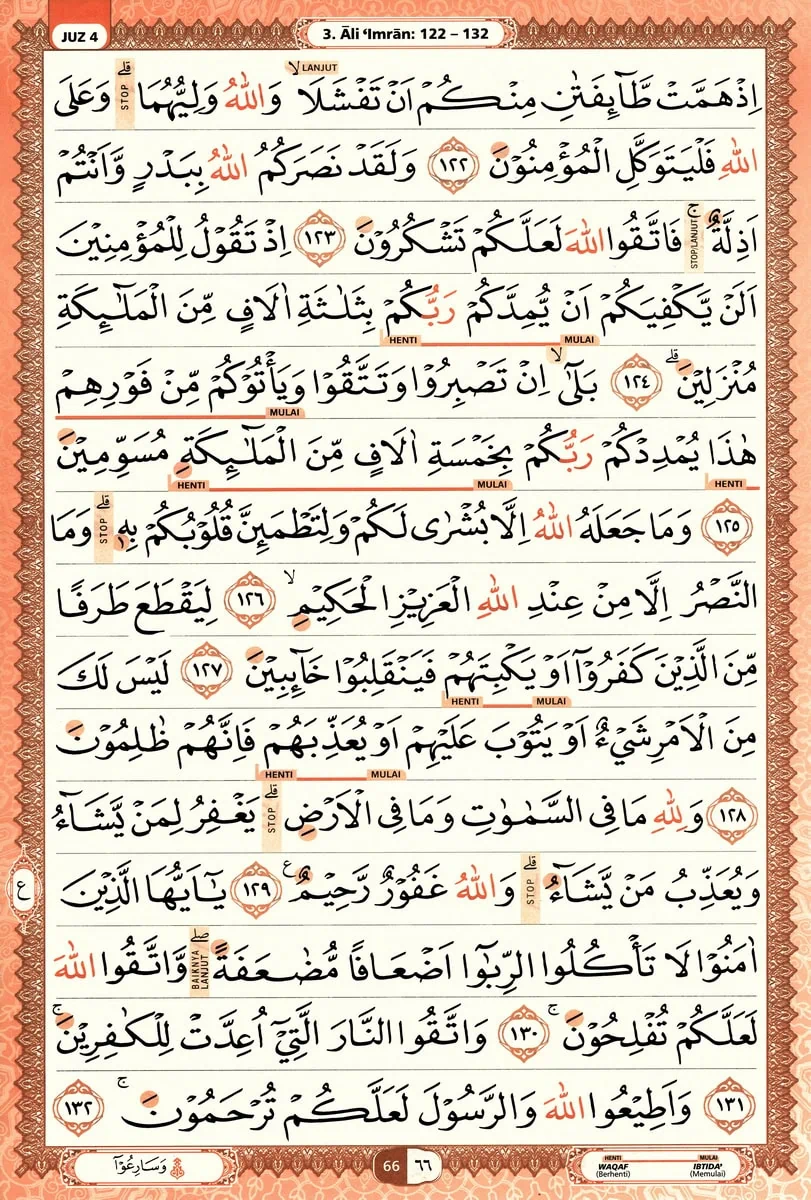 JUZ 4
3. Āli ‘Imrān: 122 – 132
اِذْ هَمَّتْ طَّاۤىِٕفَتٰنِ مِنْكُمْ اَنْ تَفْشَلَاۙ LANJUT وَاللّٰهُ وَلِيُّهُمَا ۗ STOP وَعَلَى
اللّٰهِ فَلْيَتَوَكَّلِ الْمُؤْمِنُوْنَ ١٢٢ وَلَقَدْ نَصَرَكُمُ اللّٰهُ بِبَدْرٍ وَّاَنْتُمْ
اَذِلَّةٌ ۚ STOP/LANJUT فَاتَّقُوا اللّٰهَ لَعَلَّكُمْ تَشْكُرُوْنَ ١٢٣ اِذْ تَقُوْلُ لِلْمُؤْمِنِيْنَ
اَلَنْ يَّكْفِيَكُمْ اَنْ يُّمِدَّكُمْ رَبُّكُمْ بِثَلٰثَةِ اٰلَافٍ مِّنَ الْمَلٰۤىِٕكَةِ
MULAI HENTI
مُنْزَلِيْنَۗ ١٢٤ بَلٰٓىۙ اِنْ تَصْبِرُوْا وَتَتَّقُوْا وَيَأْتُوْكُمْ مِّنْ فَوْرِهِمْ
MULAI
هٰذَا يُمْدِدْكُمْ رَبُّكُمْ بِخَمْسَةِ اٰلَافٍ مِّنَ الْمَلٰۤىِٕكَةِ مُسَوِّمِيْنَ
HENTI MULAI HENTI
١٢٥ وَمَا جَعَلَهُ اللّٰهُ اِلَّا بُشْرٰى لَكُمْ وَلِتَطْمَىِٕنَّ قُلُوْبُكُمْ بِهٖ ۗ STOP وَمَا
النَّصْرُ اِلَّا مِنْ عِنْدِ اللّٰهِ الْعَزِيْزِ الْحَكِيْمِۙ ١٢٦ لِيَقْطَعَ طَرَفًا
مِّنَ الَّذِيْنَ كَفَرُوْٓا اَوْ يَكْبِتَهُمْ فَيَنْقَلِبُوْا خَاۤىِٕبِيْنَ ١٢٧ لَيْسَ لَكَ
MULAI HENTI
مِنَ الْاَمْرِ شَيْءٌ اَوْ يَتُوْبَ عَلَيْهِمْ اَوْ يُعَذِّبَهُمْ فَاِنَّهُمْ ظٰلِمُوْنَ
MULAI HENTI
١٢٨ وَلِلّٰهِ مَا فِى السَّمٰوٰتِ وَمَا فِى الْاَرْضِ ۗ STOP يَغْفِرُ لِمَنْ يَّشَاۤءُ
وَيُعَذِّبُ مَنْ يَّشَاۤءُ ۗ STOP وَاللّٰهُ غَفُوْرٌ رَّحِيْمٌ ࣖ ١٢٩ يٰٓاَيُّهَا الَّذِيْنَ
ع
اٰمَنُوْا لَا تَأْكُلُوا الرِّبٰوٓا اَضْعَافًا مُّضٰعَفَةً ۖ BAIKNYA LANJUT وَّاتَّقُوا اللّٰهَ
لَعَلَّكُمْ تُفْلِحُوْنَۚ ١٣٠ وَاتَّقُوا النَّارَ الَّتِيْٓ اُعِدَّتْ لِلْكٰفِرِيْنَۚ
١٣١ وَاَطِيْعُوا اللّٰهَ وَالرَّسُوْلَ لَعَلَّكُمْ تُرْحَمُوْنَۚ ١٣٢
وَسَارِعُوْٓا
66 ٦٦
HENTI MULAI
WAQAF IBTIDA'
(Berhenti) (Memulai)